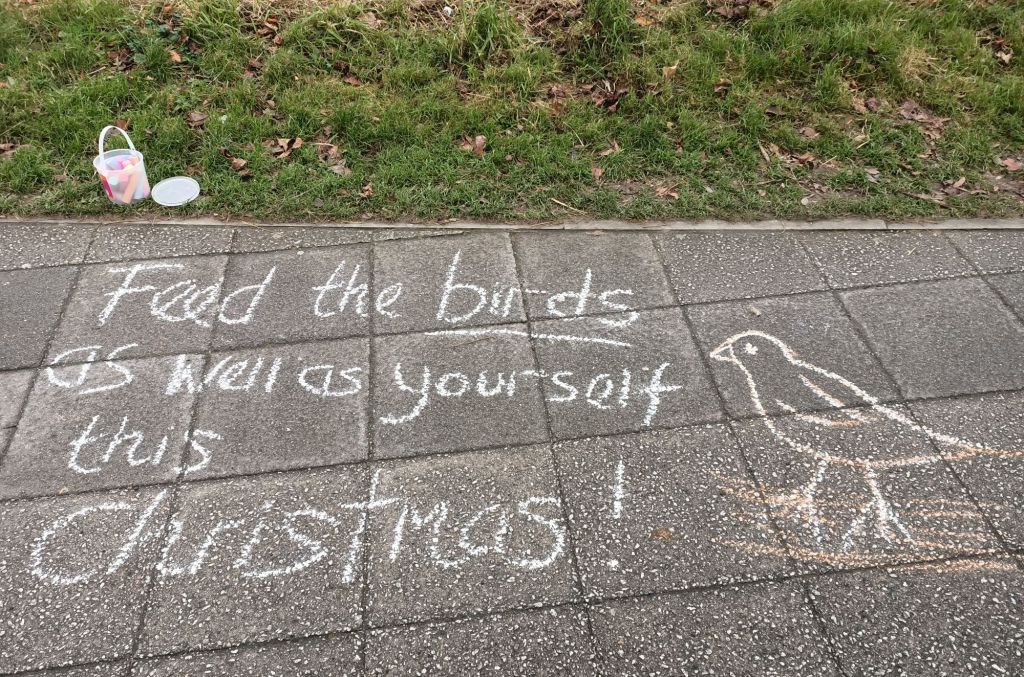 Feed the birds
as well as yourself
this
Christmas!